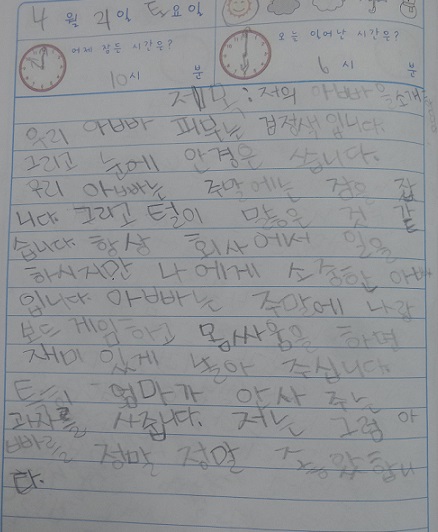 4 월 21 일 토 요일
어제 잠든 시간은? 오늘 일어난 시간은?
10 시 분 6 시 분
제목: 저의 아빠를 소개
우리 아빠 피부는 검정색 입니다.
그리고 눈에 안경은 씁니다.
우리 아빠는 주말에는 잠은 잡
니다. 그리고 털이 많은 것 같
습니다. 항상 회사에서 일을
하시지만 나에게 소중한 아빠
입니다. 아빠는 주말에 나랑
보드게임하고 몸싸움을 하면
재미 있게 놀아 주십니다.
엄마가 안 사 주는
과자를 사줍니다. 저는 그럼 아
빠를 정말 정말 합니
다.